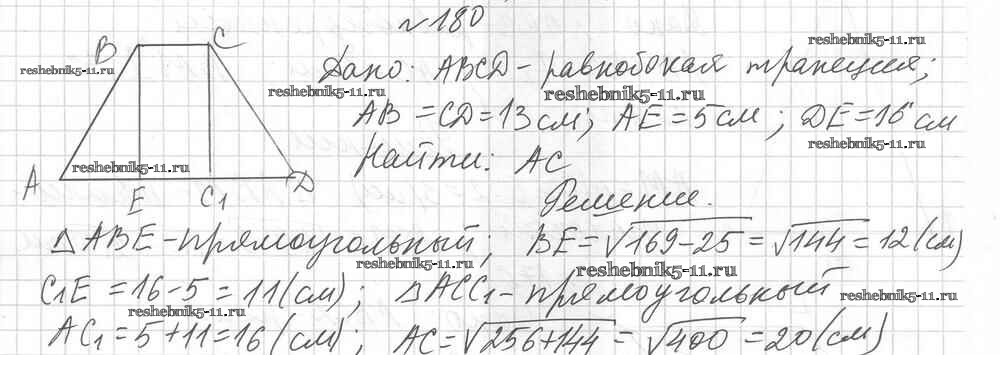 №180
B C
reshebnik5-11.ru
reshebnik5-11.ru
Дано: ABCD - равнобокая трапеция;
reshebnik5-11.ru
reshebnik5-11.ru
AB = CD = 13 см; AE = 5 см; DE = 16 см
reshebnik5-11.ru
Найти: AC
reshebnik5-11.ru
A E C₁ D
Решение.
△ABE - прямоугольный; BE = √169-25 = √144 = 12 (см)
reshebnik5-11.ru
reshebnik5-11.ru
C₁E = 16-5 = 11 (см); △ACC₁ - прямоугольный
reshebnik5-11.ru
reshebnik5-11.ru
AC₁ = 5+11 = 16 (см); AC = √256+144 = √400 = 20 (см)